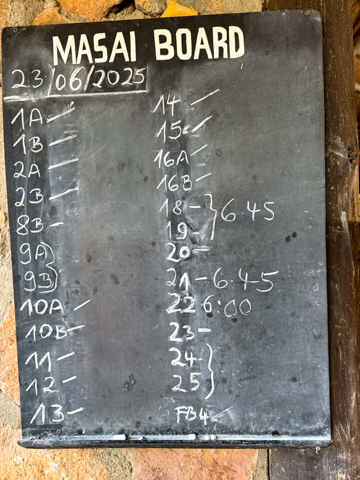 MASAI BOARD
23/06/2025
1A –
1B –
2A –
2B –
8B –
9A
9B
10A –
10B –
11 –
12 –
13 –
14 –
15 –
16A –
16B –
18 – } 6.45
19 –
20 –
21 – 6.45
22 6:00
23 –
24
25
FB4